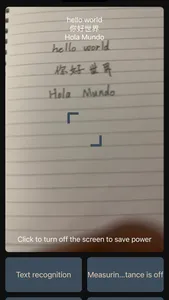 hello world
你好世界
Hola Mundo
hello world
你好世界
Hola Mundo
Click to turn off the screen to save power
Text recognition
Measurin...tance is off